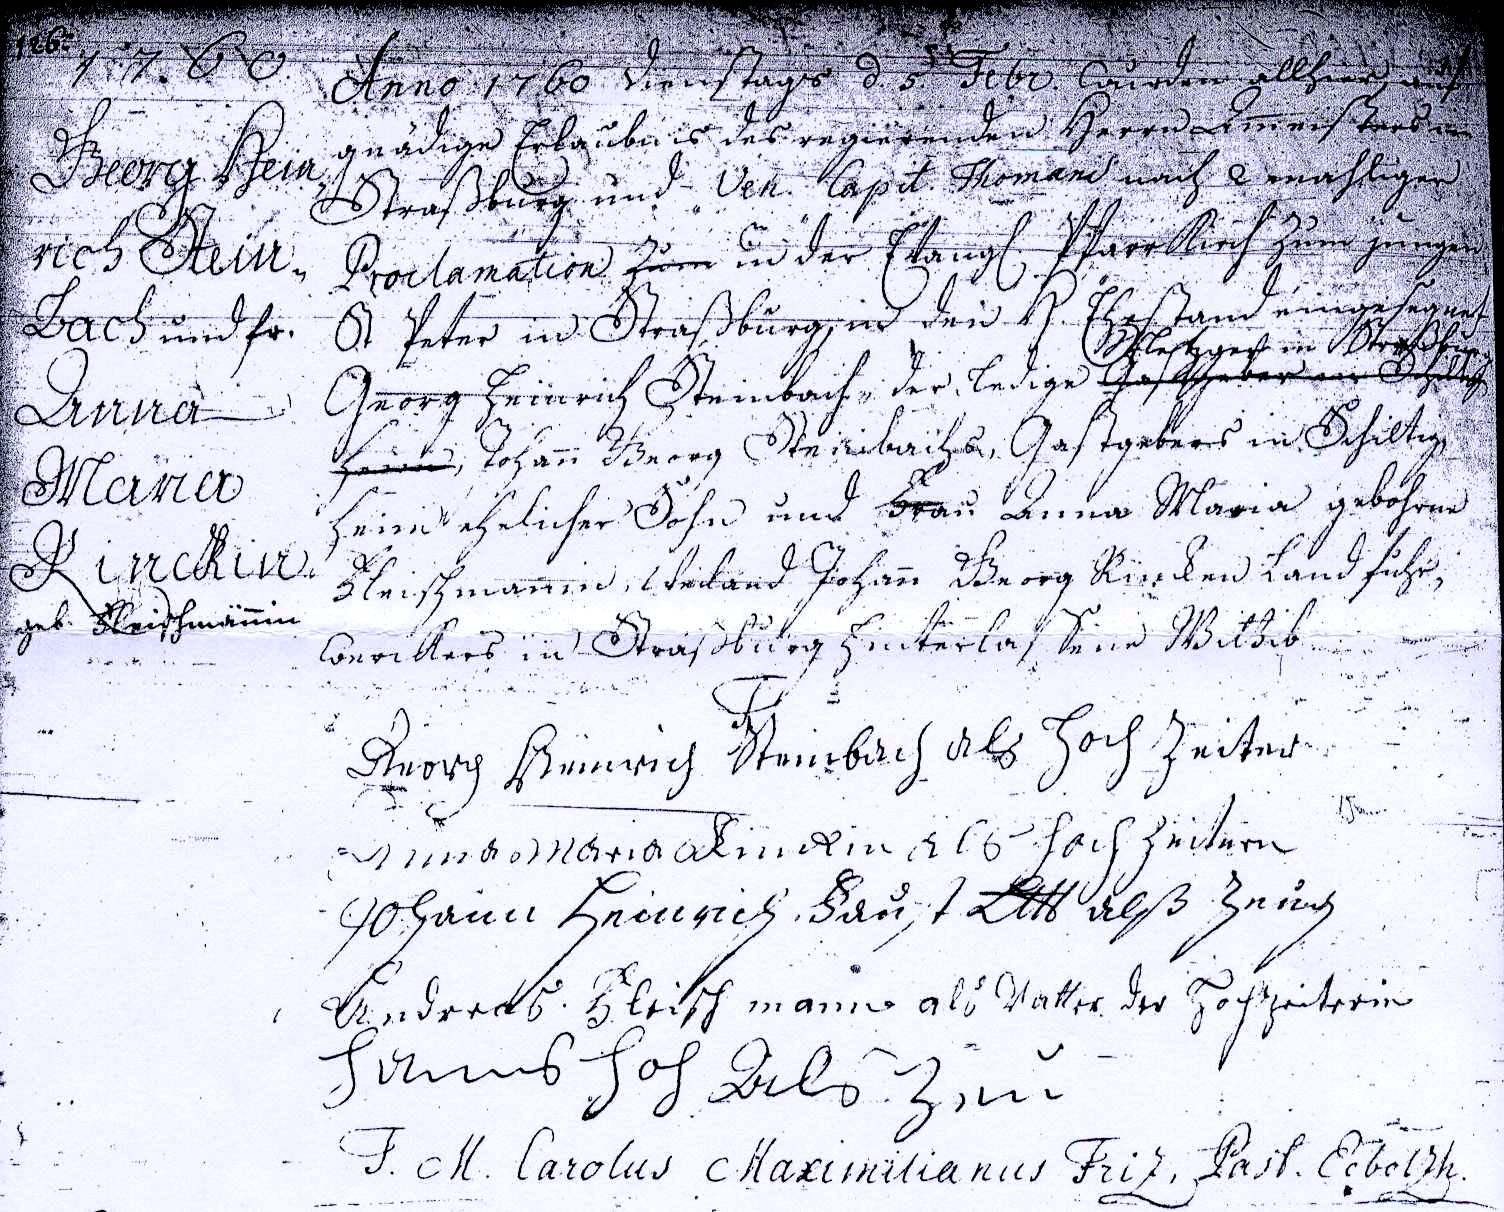 126.
1760
Georg Hein
rich Stein„
Bach und fr.
Anna
Maria
Rinckin
geb. Fleischmännin
Anno 1760 Dienstags d. 5. Febr. wurden allhier auf
gnädige Erlaubnis des regierenden Herrn Ammeisters in
Straßburg und Ven. Capit. Thomani nach 2 mahliger
Proclamation zum in der Evangl. Pfarr Kirch zum jungen
St Peter in Straßburg, in den H. Ehestand eingesegnet
Metzger in Straßburg
Georg Heinrich Steinbach, der ledige Gastgeber in Schiltig
heim, Johann Georg Steinbachs, Gastgebers in Schiltig„
heim ehelicher Sohn und Frau Anna Maria gebohrne
Fleischmannin, Weiland Johann Georg Rincken Landfuhr„
werckers in Straßburg hinterlassene Wittib
Georg Heinrich Steinbach als Hoch Zeiter
Anna Maria Rinckin als Hoch Zeitern
Johann Heinrich Faust alß Zeug
Andreas Fleisch mann als Vatter der Hochzeiterin
Hanns Hoh Als Zeu
F. M. Carolus Maximilianus Friz, Past. Ecbolzh.